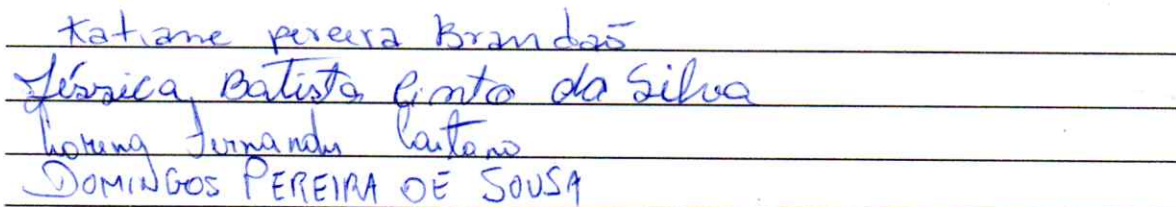 Katiane pereira Brandão
Jéssica Batista Pinto da Silva
Lorena Fernandes Caitano
DOMINGOS PEREIRA DE SOUSA